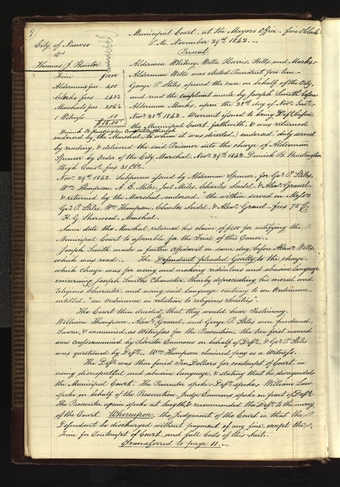 9
Municipal Court, at the Mayors Office, five O'Clock
P.M. November 29th 1842.
Present
City of Nauvoo
vs
Thomas J. Hunter
Aldermen Whitney, Wells, Harris, Hills, and Marks.
Fine $10.00 Alderman Wells was elected President pro. tem.
Aldermens fees George P. Stiles opened the case on behalf of the City,
Clerks fees and read the complaint made by Joseph Smith before
Marshals fees Alderman Marks, upon the 28th day of Nov. Inst.
Witness .50 Nov. 28th 1842. Warrant issued to bring Deft. before
the Municipal Court, forthwith, & was returned
endorsed by the Marshal, to whom it was directed; endorsed "duly served
by reading, & delivered the said Prisoner into the charge of Alderman
Spencer by Order of the City Marshal, Nov. 28th 1842. Dimick B. Huntington
Nov. 29th 1842. Subpoena issued by Alderman Spencer, for Geo. P. Stiles,
Wm. Thompson, Charles Seidel, & Nawl Granel.
& returned by the Marshal, endorsed, the within served on Messrs
Geo. P. Stiles, Wm. Thompson, Charles Seidel,
H. G. Sherwood, Marshal.
Same date the Marshal returned his claim of for notifying the
Municipal Court to assemble for the Trial of this Cause.
Joseph Smith made a further affidavit on same day, before Aldn. Wells,
which was read. The Defendant pleaded Guilty to the charge
which charge was for using and making ridiculous and abusive language
concerning Joseph Smiths Character, thereby depreciating his moral and
religious Character and using said language contrary to an Ordinance
entitled "an Ordinance in relation to religious societies".
The Court then decided that they would hear Testimony.
William Thompson, Granel, and George P. Stiles were produced,
Sworn, & examined, as Witnesses for the Prosecution, the two first named
were crossexamined by Sylvester Emmons on behalf of Deft. & Geo. P. Stiles
was questioned by Deft. Wm. Thompson claimed pay as a Witness.
The Deft. was then fined Ten Dollars for contempt of Court in
using disrespectful and abusive language, & stating that he disregarded
the Municipal Court. The Prosecutor spoke. Deft. spoke. William Law
spoke on behalf of the Prosecution, Judge Emmons spoke on part of Deft.
The Prosecutor again spoke at length & recommended the Deft. to the mercy
of the Court. Whereupon, the Judgement of the Court is that the
Defendant be discharged without payment of any fine, except the
Fine for Contempt of Court, and full Costs of this Suit.
Transferred to page 11.